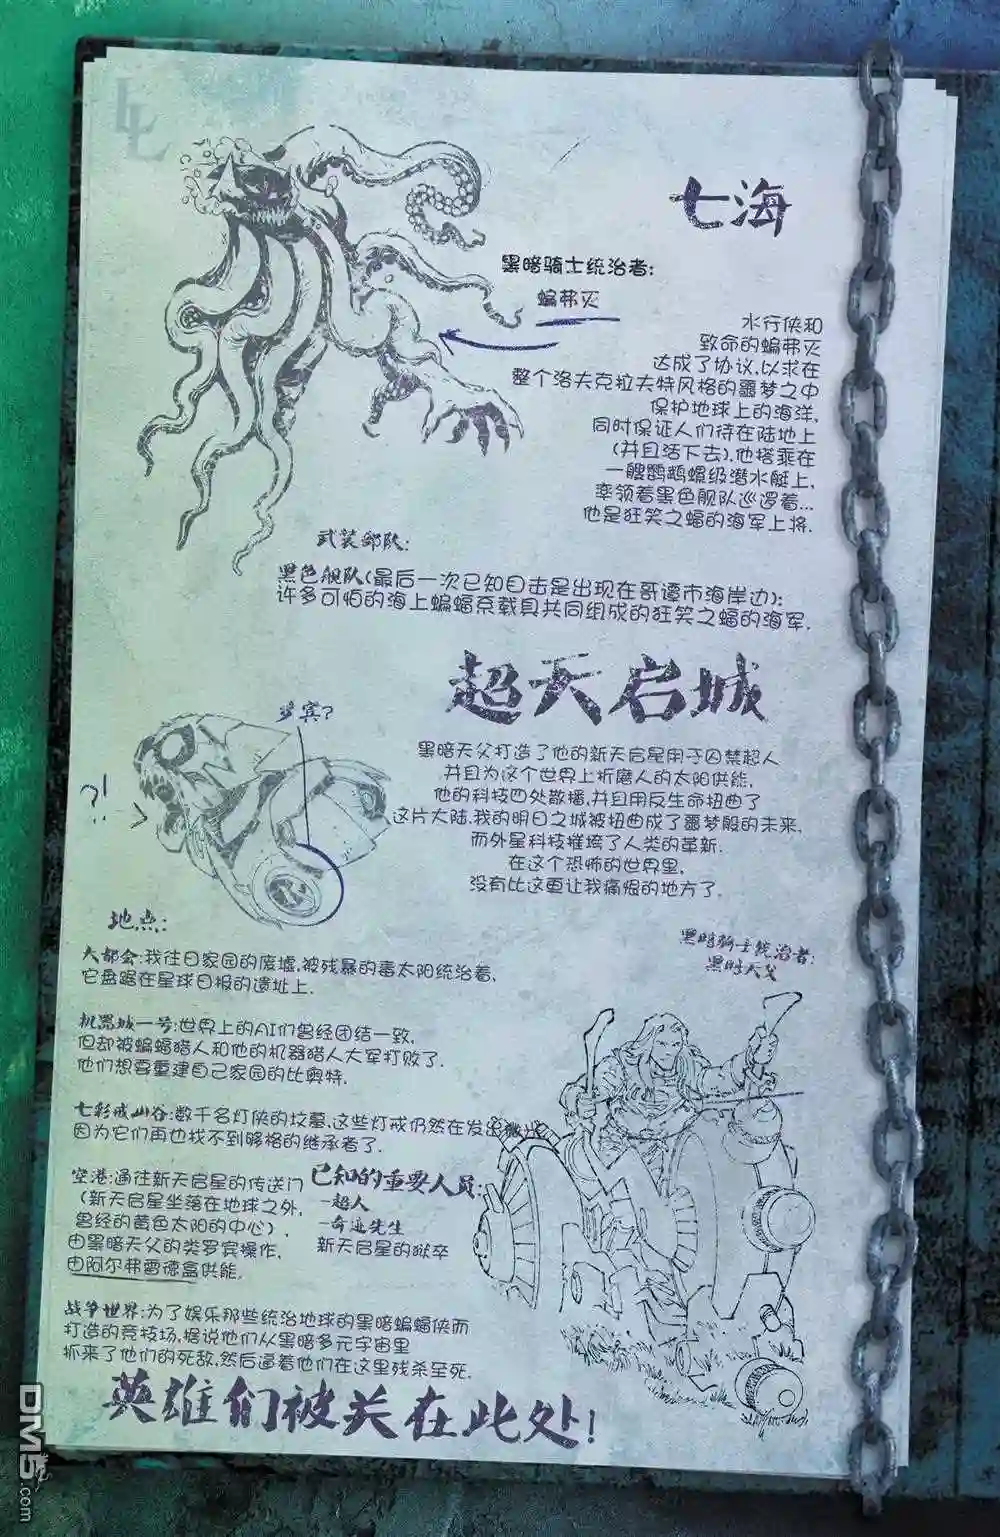 LL
七海
黑暗骑士统治者:
蝙弗灭
水行侠和
致命的蝙弗灭
达成了协议,以求在
整个洛夫克拉夫特风格的噩梦之中
保护地球上的海洋,
同时保证人们待在陆地上
(并且活下去),他搭乘在
一艘鹦鹉螺级潜水艇上,
率领着黑色舰队巡逻着...
他是狂笑之蝠的海军上将.
武装部队:
黑色舰队(最后一次已知目击是出现在哥谭市海岸边):
许多可怕的海上蝙蝠系载具共同组成的狂笑之蝠的海军.
超天启城
罗宾?
?!
黑暗天父打造了他的新天启星用于囚禁超人
并且为这个世界上折磨人的太阳供能,
他的科技四处散播,并且用反生命扭曲了
这片大陆,我的明日之城被扭曲成了噩梦般的未来,
而外星科技摧垮了人类的革新.
在这个恐怖的世界里,
没有比这更让我痛恨的地方了.
地点:
大都会:我往日家园的废墟,被残暴的毒太阳统治着,
它盘踞在星球日报的遗址上.
黑暗骑士统治者:
黑暗天父
机器城一号:世界上的AI们曾经团结一致,
但却被蝙蝠猎人和他的机器猎人大军打败了.
他们想要重建自己家园的比奥特.
七彩戒山谷:数千名灯侠的坟墓,这些灯戒仍然在发出微光
因为它们再也找不到够格的继承者了.
空港:通往新天启星的传送门
(新天启星坐落在地球之外,
曾经的黄色太阳的中心),
由黑暗天父的类罗宾操作,
由阿尔弗雷德盒供能.
已知的重要人员:
-超人
-奇迹先生
新天启星的狱卒
战争世界:为了娱乐那些统治地球的黑暗蝙蝠侠而
打造的竞技场,据说他们从黑暗多元宇宙里
抓来了他们的死敌,然后逼着他们在这里残杀至死.
英雄们被关在此处!
DM5.com